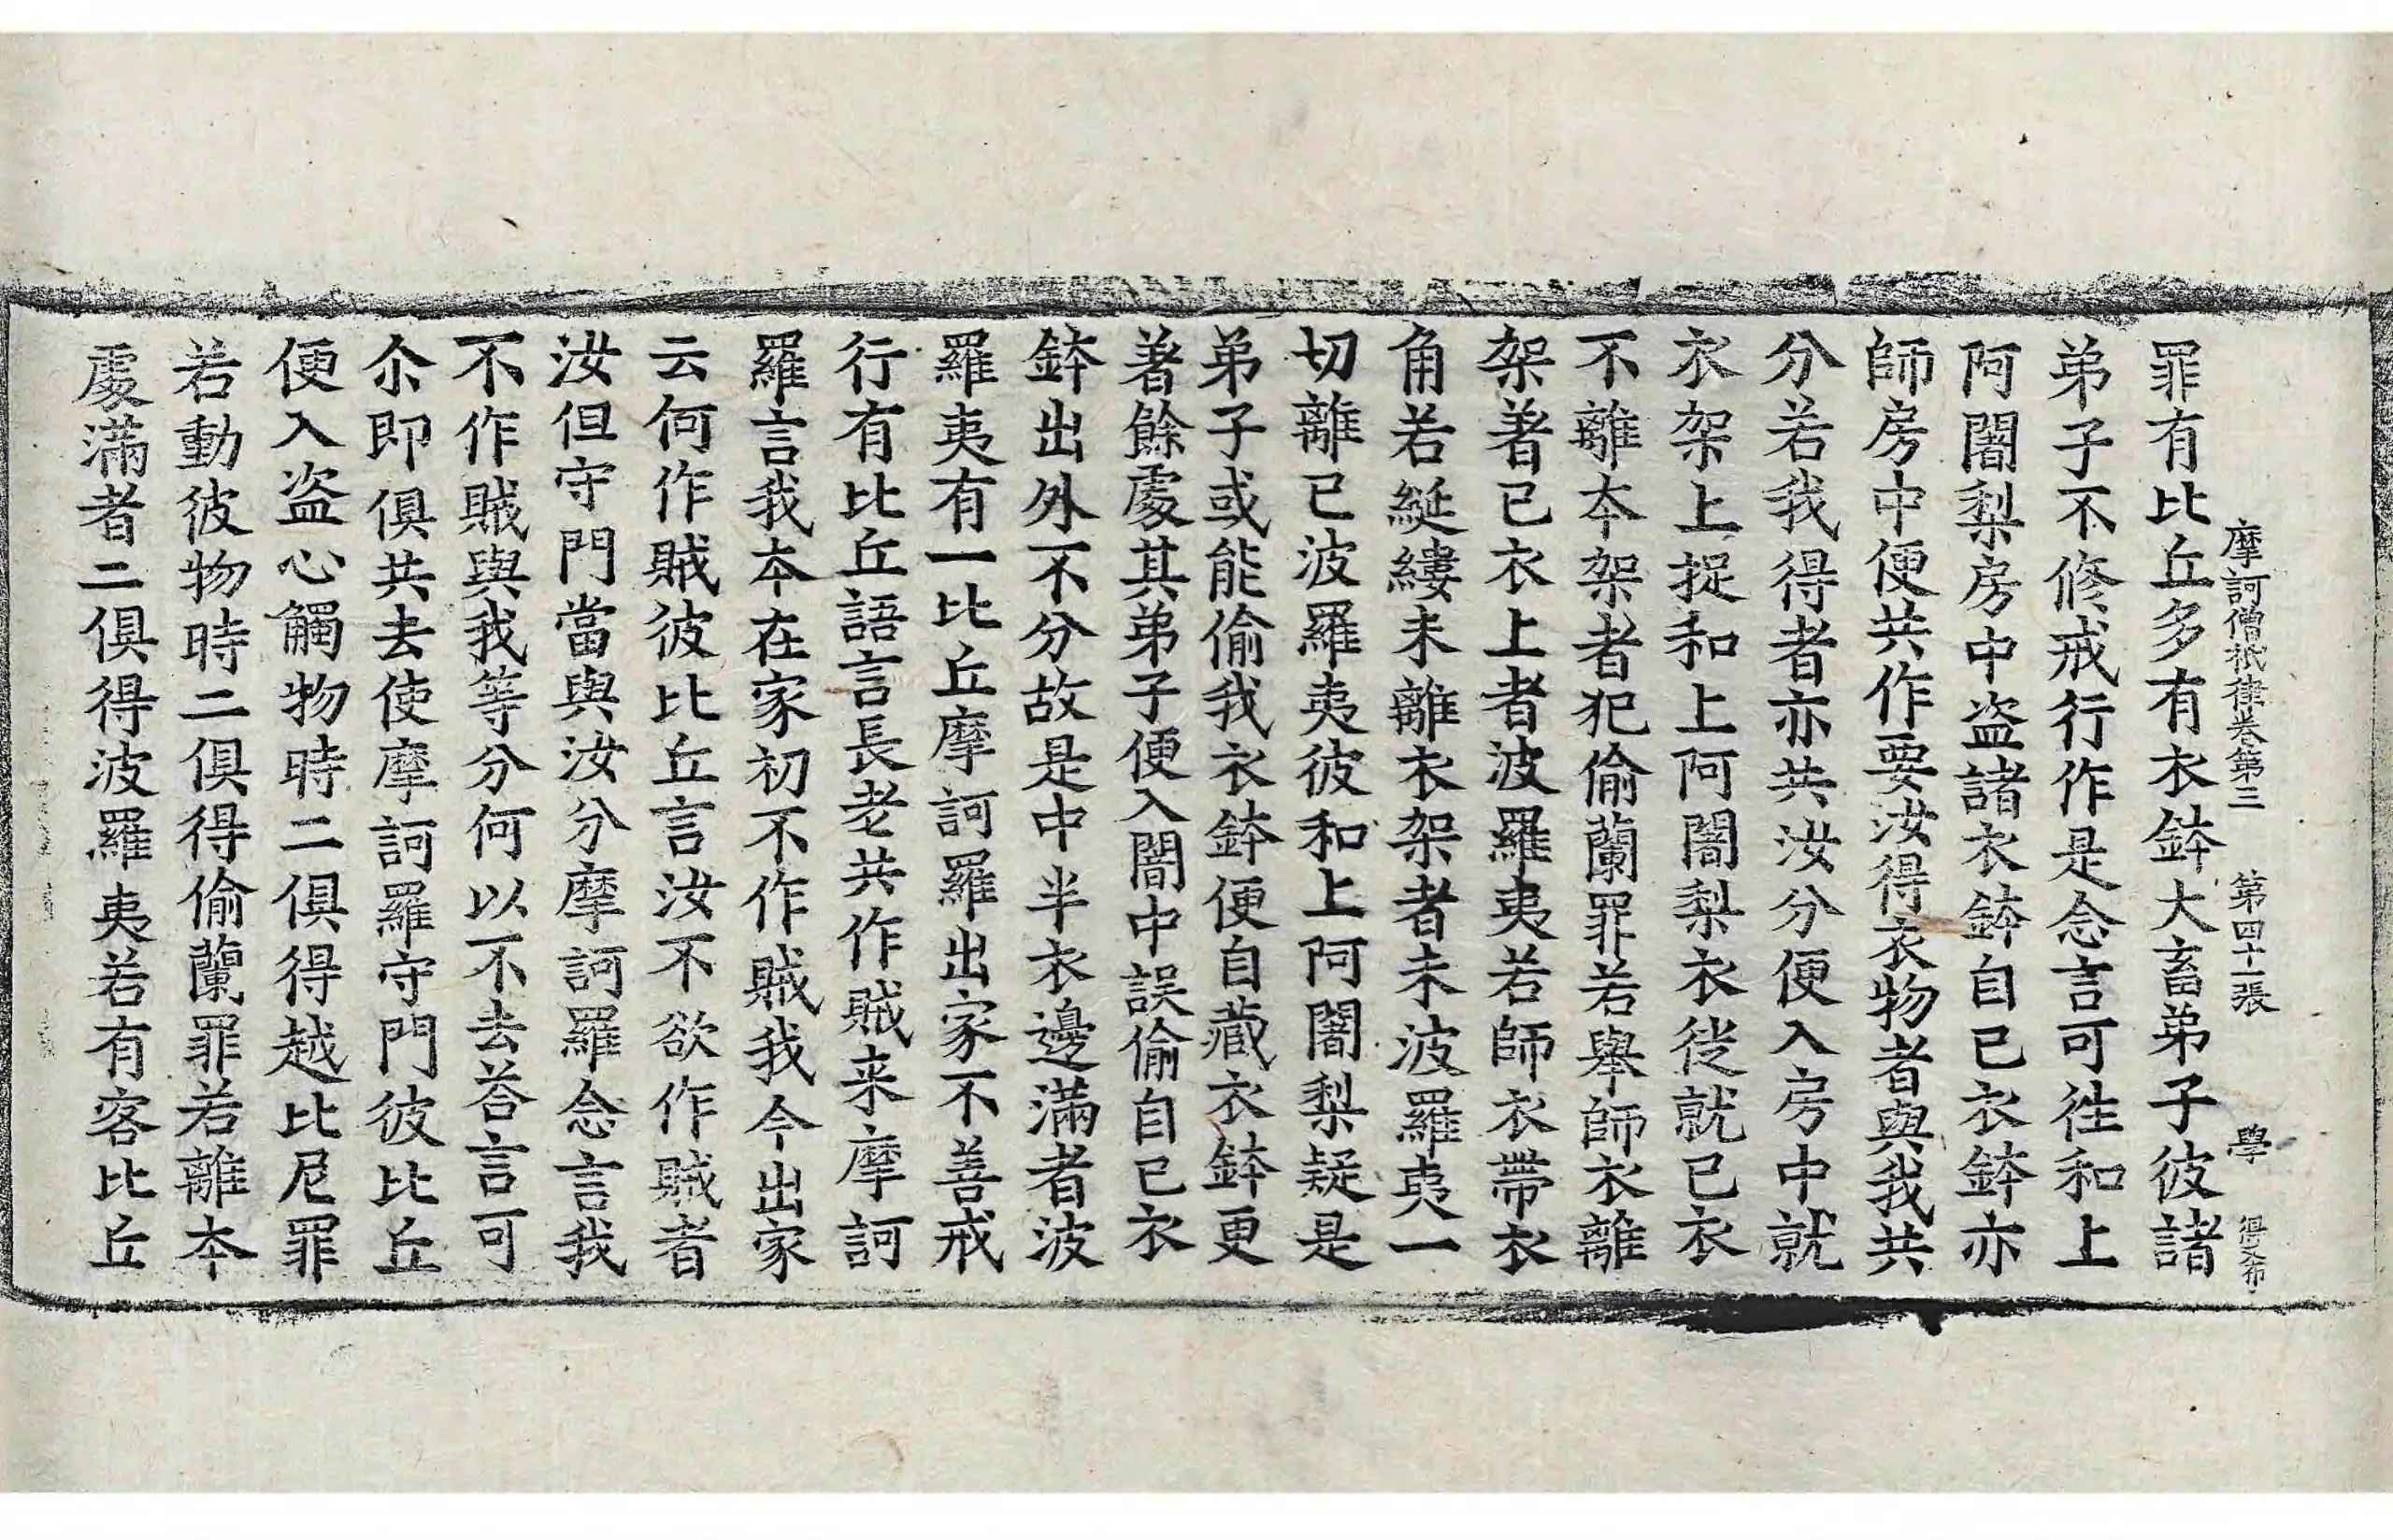 摩訶僧祇律卷第三 第四十一張 學
罪有比丘多有衣鉢大畜弟子彼諸
弟子不修戒行作是念言可徃和上
阿闍梨房中盗諸衣鉢自已衣鉢亦
師房中便共作要汝得衣物者與我共
分若我得者亦共汝分便入房中就
衣架上捉和上阿闍梨衣徙就已衣
不離本架者犯偷蘭罪若舉師衣離
架著已衣上者波羅夷若師衣帶衣
角若綖縷未離衣架者未波羅夷一
切離已波羅夷彼和上阿闍梨疑是
弟子或能偷我衣鉢便自藏衣鉢更
著餘處其弟子便入闇中誤偷自已衣
鉢出外不分故是中半衣邊滿者波
羅夷有一比丘摩訶羅出家不善戒
行有比丘語言長老共作賊来摩訶
羅言我本在家初不作賊我今出家
云何作賊彼比丘言汝不欲作賊者
汝但守門當與汝分摩訶羅念言我
不作賊與我等分何以不去荅言可
尒即俱共去使摩訶羅守門彼比丘
便入盗心觸物時二俱得越比尼罪
若動彼物時二俱得偷蘭罪若離本
處滿者二俱得波羅夷若有客比丘